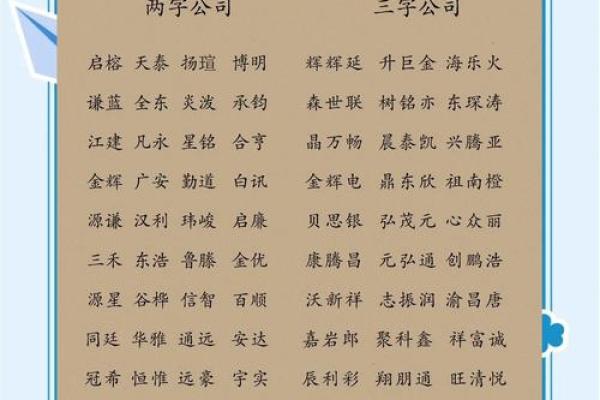 两字公司 三字公司
启榕 天泰 扬瑄 博明 辉辉延 升巨金 海乐火
谦蓝 全东 炎泼 承钧 森世联 树铭亦 东琛涛
江建 凡永 星铭 合亨 晶万畅 晨泰凯 兴腾亚
金辉 广安 勤道 白讯 金辉电 鼎东欣 祖南橙
源谦 汉利 玮峻 启廉 贝思银 弘茂元 心众丽
三禾 东浩 鲁滕 金优 康腾昌 元弘通 创鹏浩
源星 谷桦 信智 百顺 沃新祥 志振润 渝昌唐
同廷 华雅 通远 安达 嘉岩郎 聚科鑫 祥富诚
冠希 恒惟 远豪 宇实 辰利彩 翔朋通 旺清悦